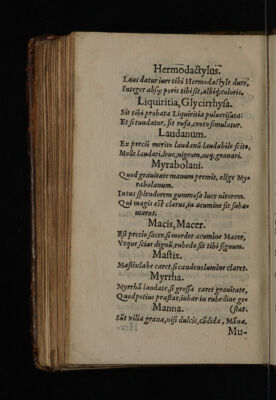 Hermodactylus.
Laus datur iure tibi Hermodactyle dure,
Integer absq; poris tibi sit, albiq; coloris.
Liquiritia, Glycirrhysa.
Sit tibi probata Liquiritia puluerisata:
Et si tundatur, sit rufa, croco simulatur.
Laudanum.
Ex precii merito laudanū laudabile scito,
Molle laudari, leue, nigrum, neq; grauari.
Myrabolani.
Quod grauitate manum premit, elige My-
rabolanum.
Intus splendorem gummosa luce nitorem.
Qui magis est clarus, in acumine sit
Macis, Macer.
Est precio sacer, si mordet acumine Macer,
Vtque scias dignū, rubedo sit tibi signum.
Mastix.
Mastix labe caret, si candens lumine claret.
Myrrha.
Myrrhā laudate, si grossa caret grauitate,
Quod potius præstat, iubar in rubedine ge-
Manna. (stat.
Sūt vilia grana, nisi dulcis, cādida, Māna.
Mu-